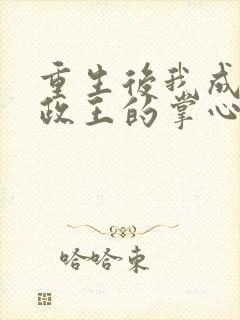 重生後我成
政王的掌心
哈哈東